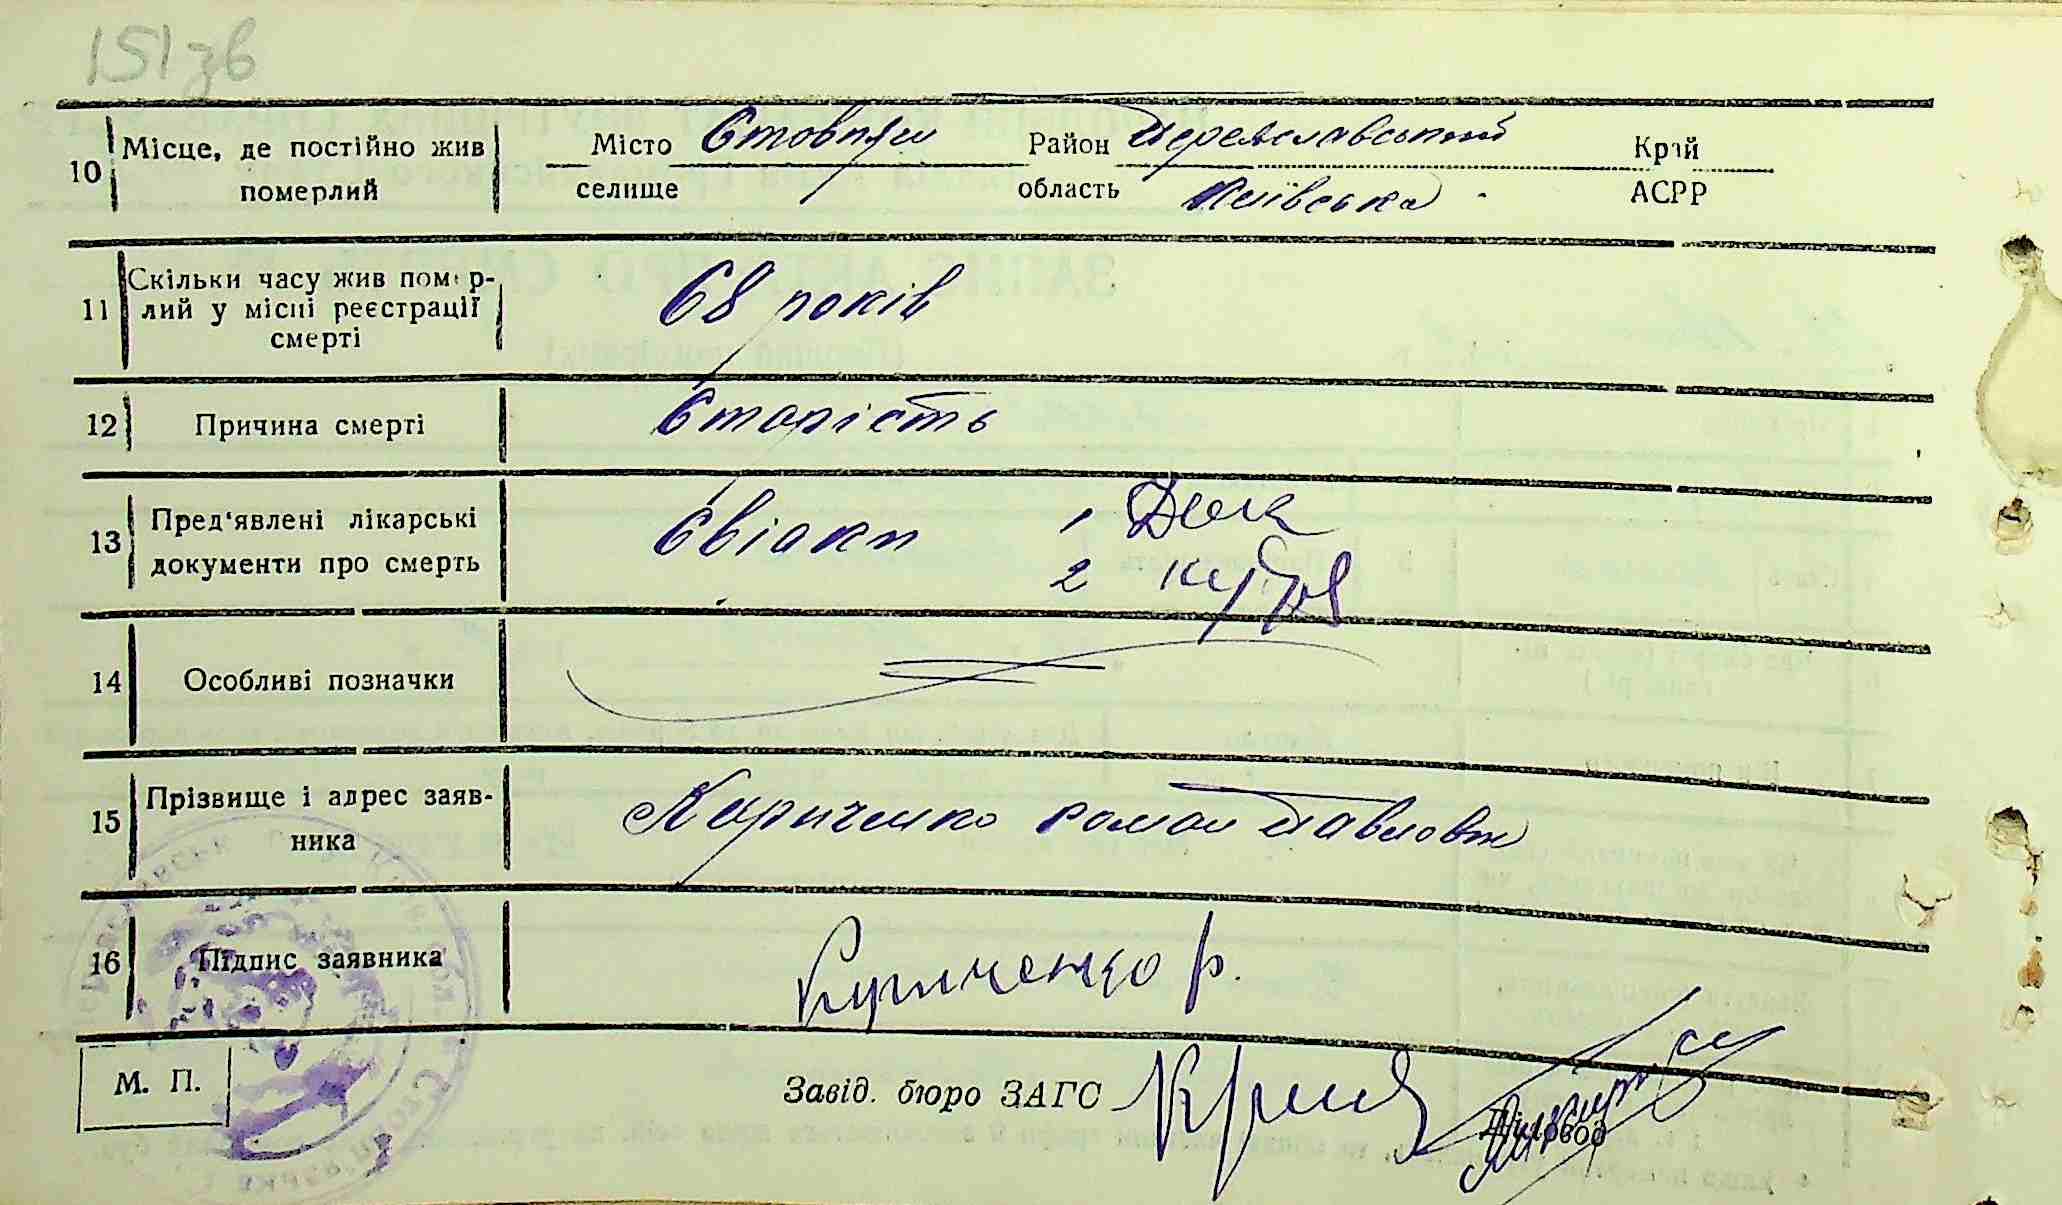 151зв
10 Місце, де постійно жив померлий Місто Стовпяги Район Переяславський Край
селище область Київська АСРР
11 Скільки часу жив помер-
лий у місці реєстрації
смерті 68 років
12 Причина смерті Старість
13 Пред'явлені лікарські
документи про смерть Свідки 1
2
14 Особливі позначки
15 Прізвище і адрес заяв-
ника Кириченко Роман Павлович
16 Підпис заявника Кириченко Р.
М. П.
Завід. бюро ЗАГС
Діловод